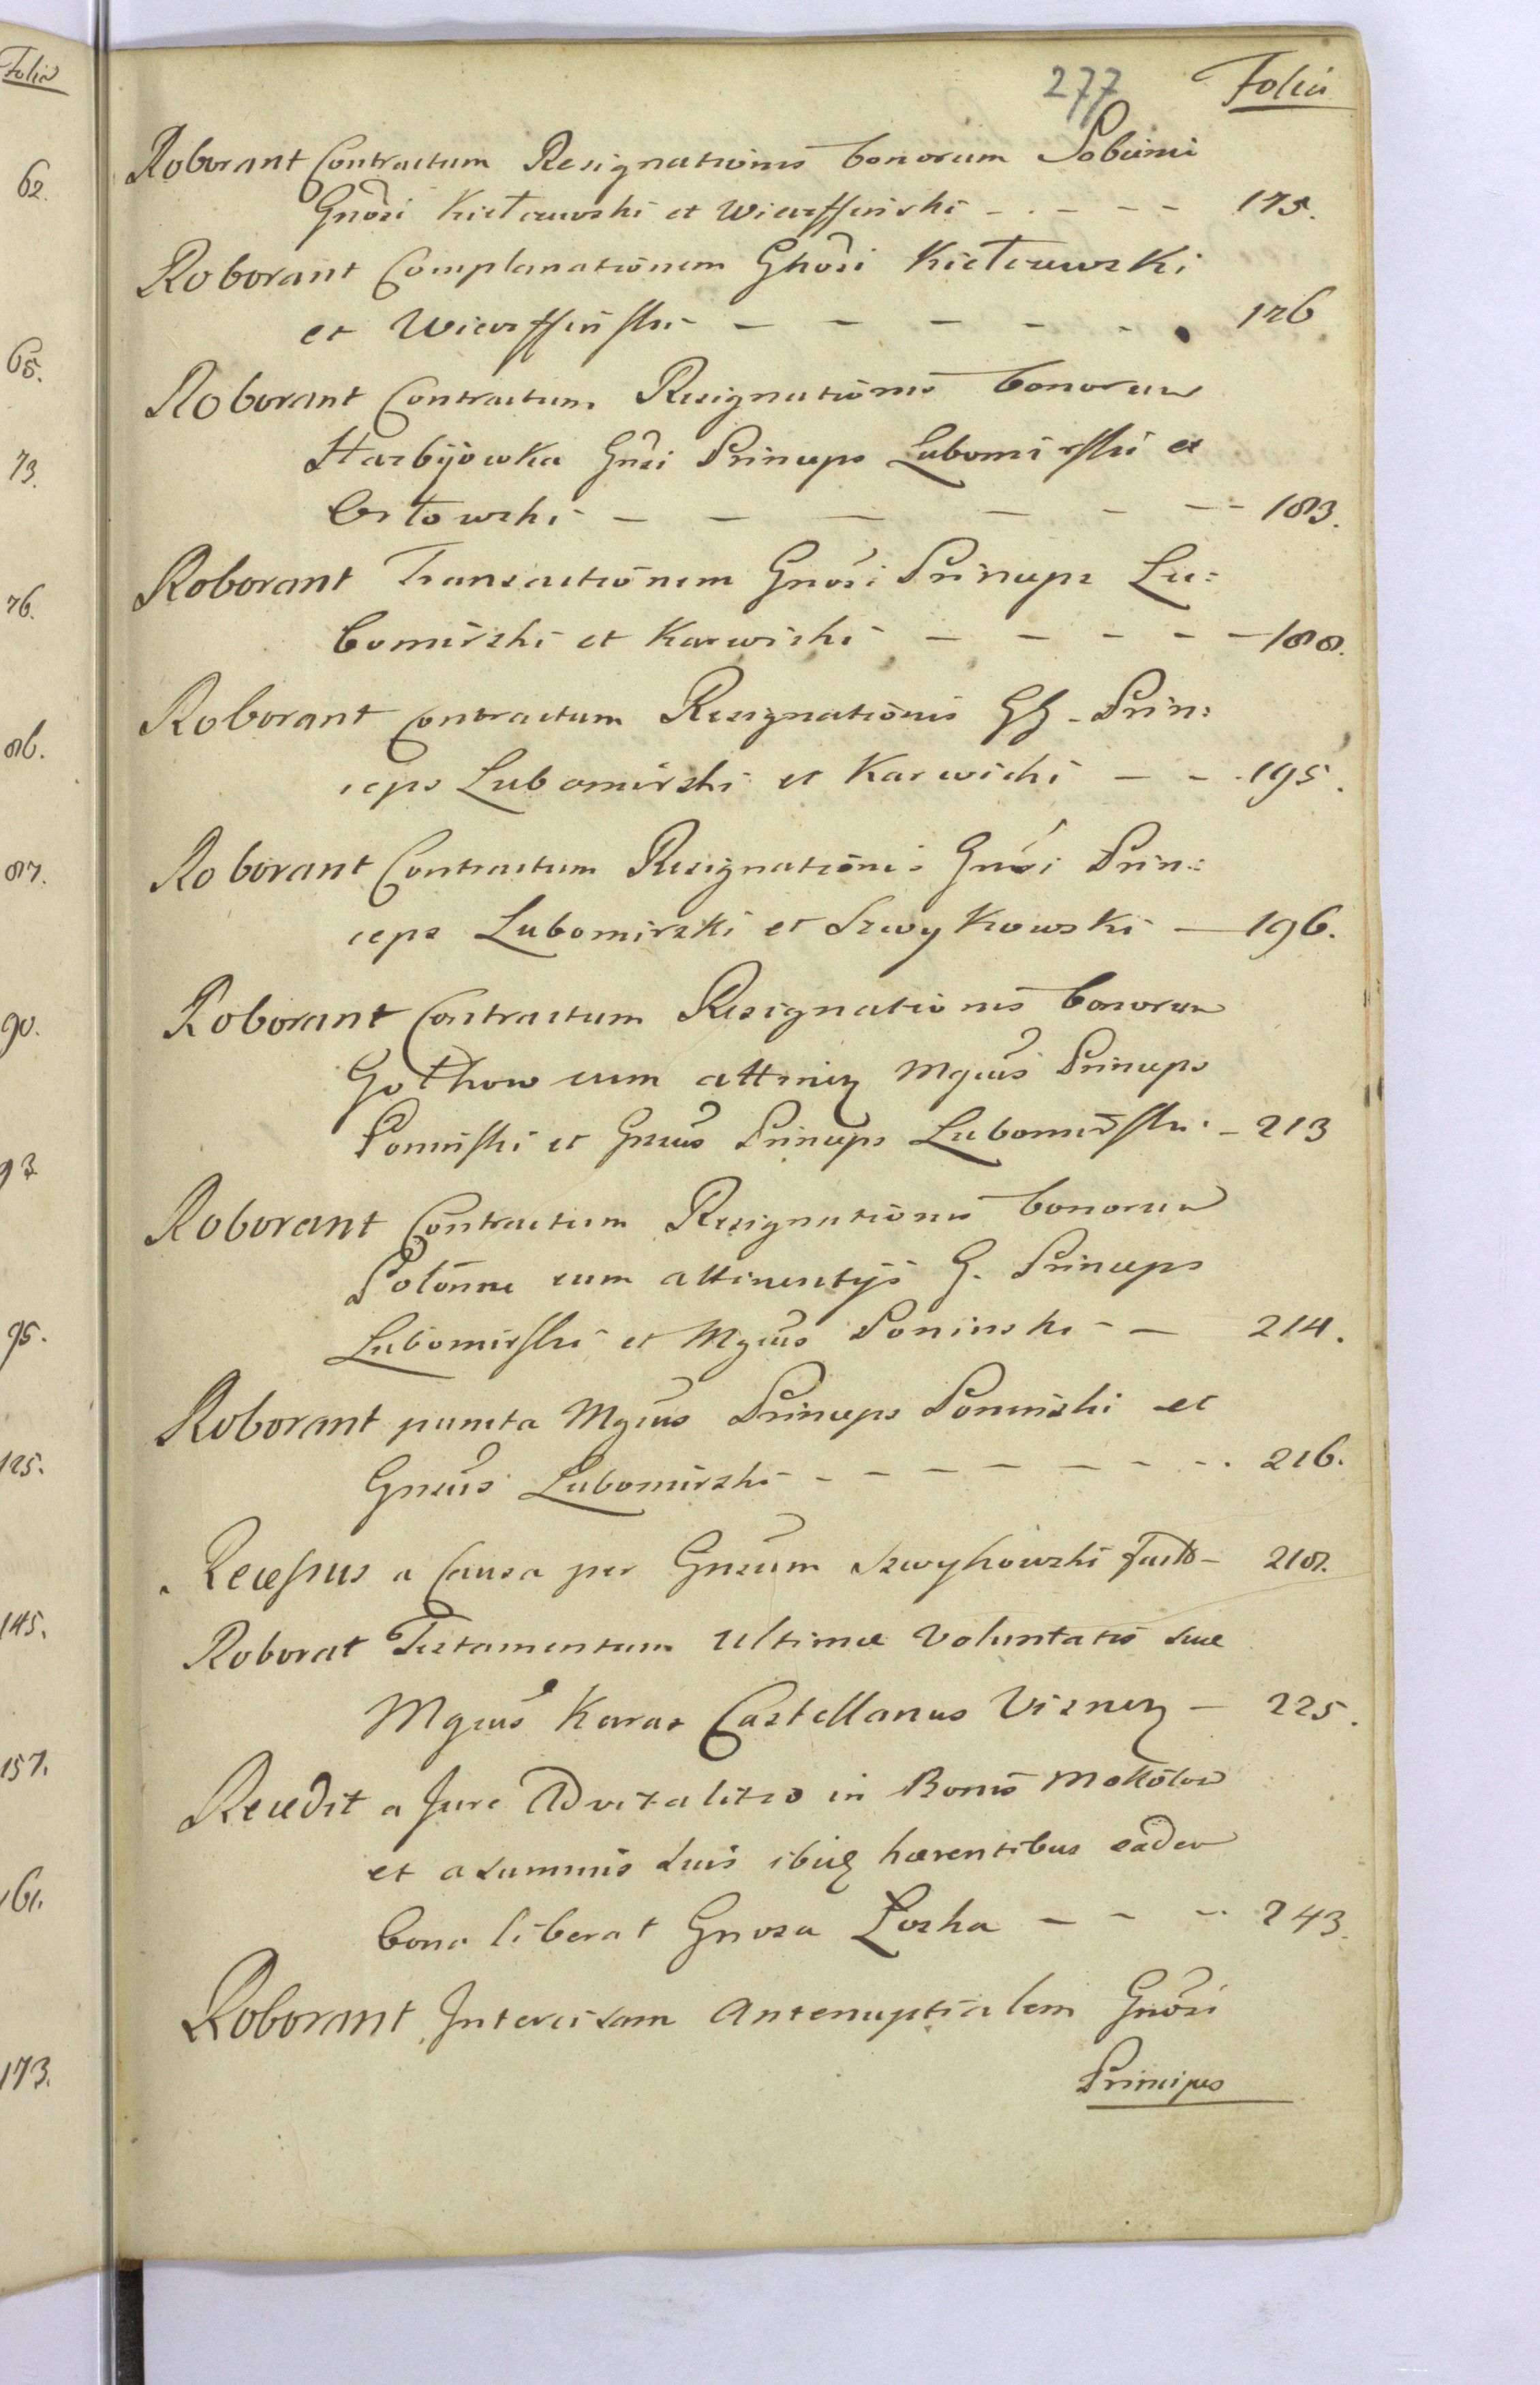 Folia
62.
65.
73.
76.
86.
87.
90.
93
95.
125.
145.
157.
161.
173.
277 Folia
Roborant Contractum Resignationis bonorum Sobieni
Gnõsi Kiełczewski et Wierffinski - - - - 175.
Roborant Complanationem Gnõsi Kiełczewski
et Wierffinski - - - - - 176
Roborant Contractum Resignationis bonorum
Harbijowka Gnsi Princeps Lubomirski et
Orłowski - - - - - - 183.
Roborant Transactionem Gnosi Princeps Lu:
bomirski et Karwicki - - - - - 188.
Roborant Contractum Resignationis GG. Prin:
ceps Lubomirski et Karwicki - - 195.
Roborant Contractum Resignationis Gnosi Prin:
ceps Lubomirski et Szwykowski - 196.
Roborant Contractum Resignationis bonorum
cum attinen Mgcus Princeps
Poninski et Gnsus Princeps Lubomirski - 213
Roborant Contractum Resignationis bonorum
Połonne cum attinentijs G. Princeps
Lubomirski et Mgcus Poninski - - 214.
Roborant puncta Mgcus Princeps Poninski et
Gnsus Lubomirski - - - - - - - - 216.
Recessus a Causa per Gnsum Szwykowski facto - 218.
Roborat Testamentum Ultimæ Voluntatis suæ
Mgcus Karas Castellanus Visnen - 225.
Recedit a Jure Advitalitio in Bonis Mokotow
et a summis suis ibiq hærentibus eadem
bona liberat Gnosa Loska - - - 243.
Roborant Intercisam Antenuptialem Gnosi
Princips